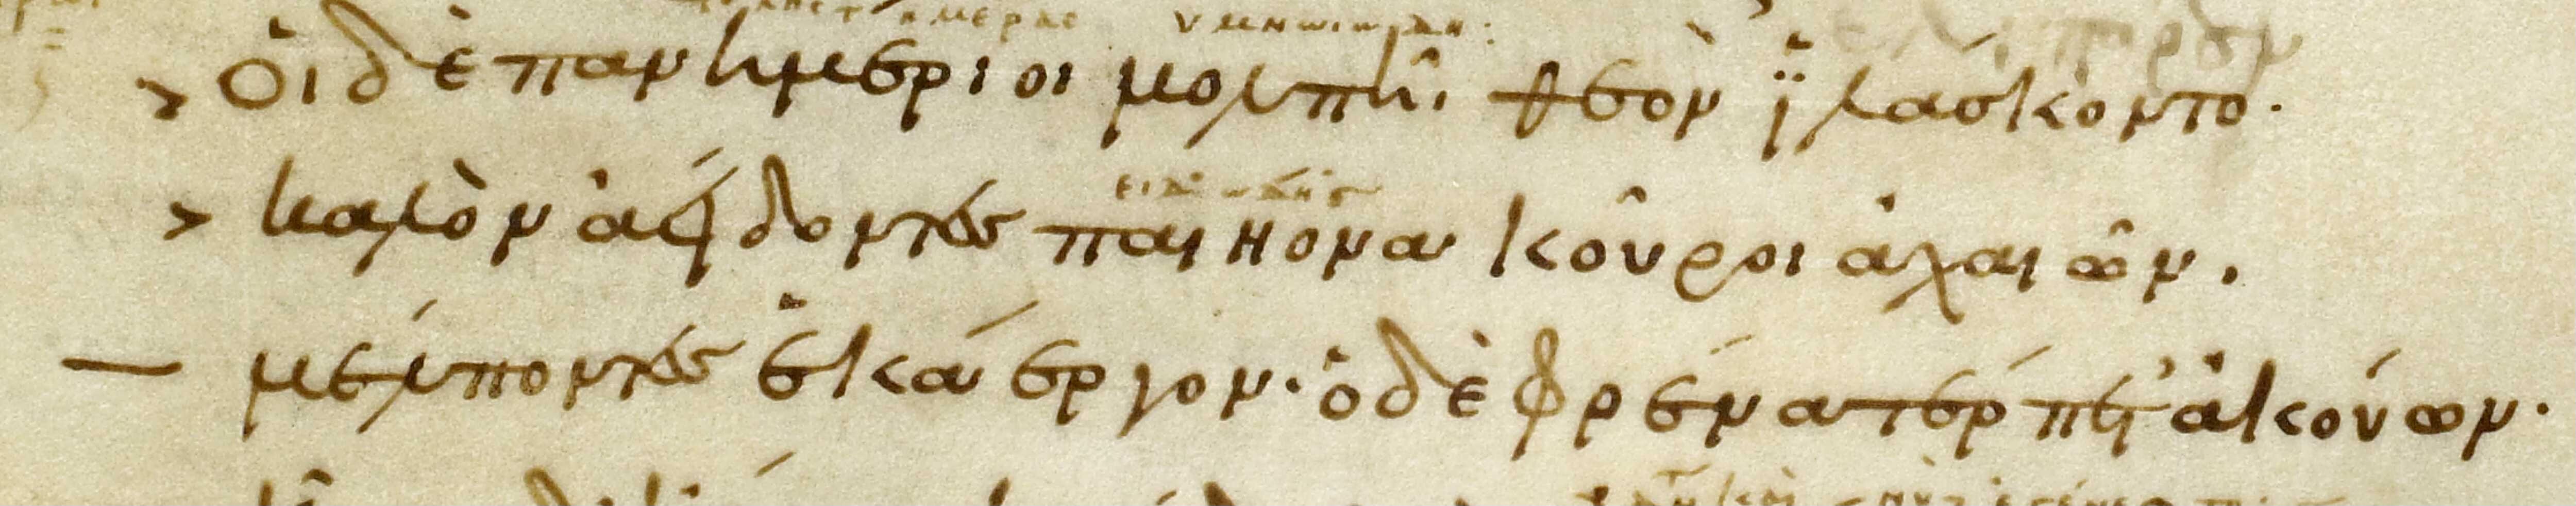 οἱ δὲ πανημέριοι μολπῆι θεὸν ἱλάσκοντο·
καλὸν ἀείδοντες παιήονα κοῦροι ἀχαιῶν.
μέλποντες ἑκάεργον· ὁ δὲ φρένα τέρπετ' ἀκούων·